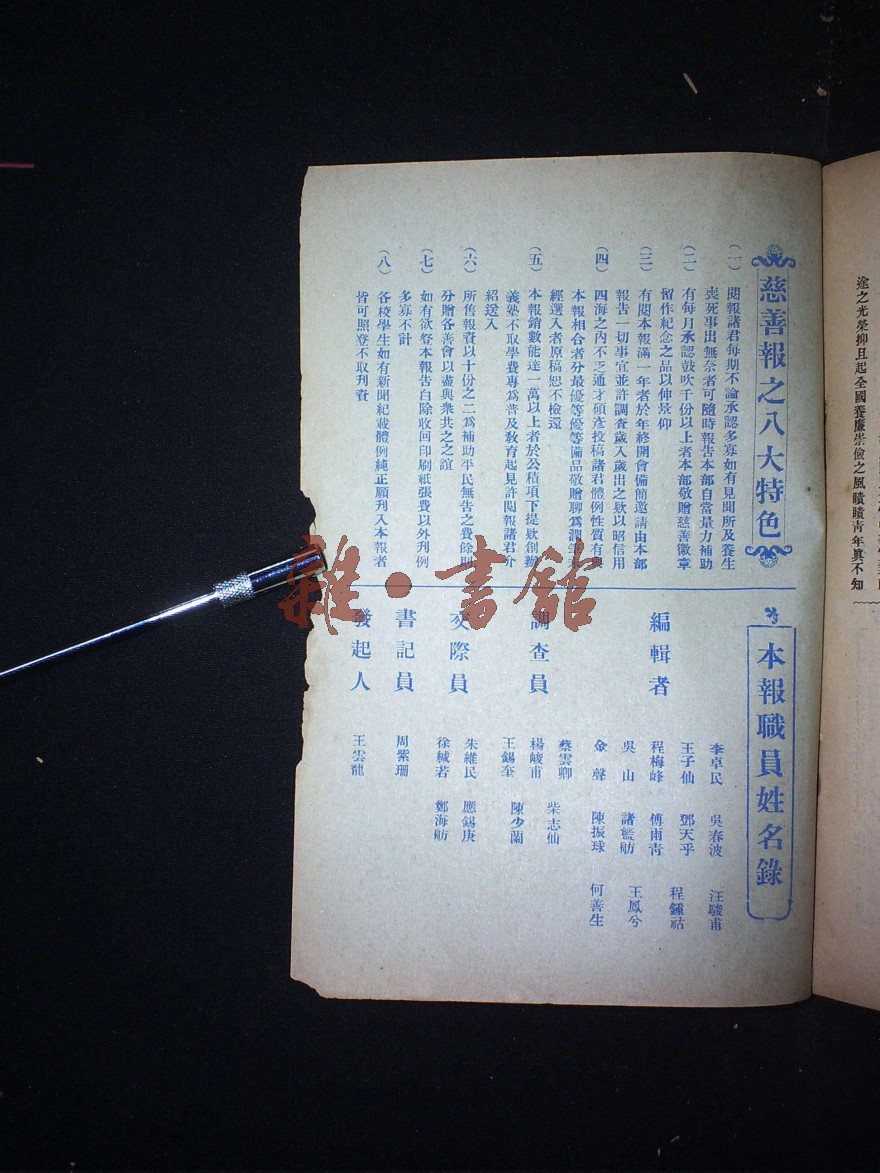 慈善報之八大特色
（一）閱報諸君每期不論承認多寡如有見聞所及養生
喪死事出無奈者可隨時報告本部自當量力補助
（二）有每月承認鼓吹千份以上者本部敬贈慈善徽章
留作紀念之品以伸景仰
（三）有閱本報滿一年者於年終開會備簡邀請由本部
報告一切事宜並許調查歲入歲出之欵以昭信用
（四）四海之內不乏通才碩彥投稿諸君體例性質有與
本報相合者分最優等優等備品敬贈聊爲潤筆
經選入者原稿恕不檢還
（五）本報銷數能達一萬以上者於公積項下提欵創辦
義塾不取學費專爲普及敎育起見許閱報諸君介
紹送入
（六）所售報資以十份之二爲補助平民無告之費餘則
分贈各善會以盡與衆共之之誼
（七）如有欲登本報告白除收回印刷紙張費以外刋例
多寡不計
（八）各校學生如有新聞紀載體例純正願刋入本報者
皆可照登不取刋資
本報職員姓名錄
編輯者
李卓民 吳春波 汪駿甫
王子仙 鄧天乎 程鍾祜
程梅峰 傅雨青 王鳳兮
吳山 諸籃舫
金聲 陳振球 何善生
調查員
蔡雲卿 柴志仙
楊峻甫 陳少蘭
王錫奎
交際員
朱維民 應錫庚
徐緘若 鄭海舫
書記員
周紫珊
發起人
王雲龍
途之光榮抑且起全國養廉崇儉之風瞶瞶青年眞不知
雜·書館